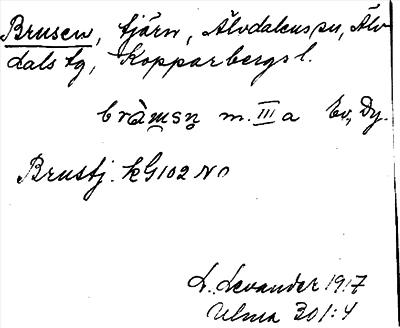 Brusen, tjärn, Älvdalens sn, Älv-
dals tg, Kopparbergs l.
bràmsn̥ m. III a Ev, Dy.
Brustj. kG102 NO
L. Levander 1917
Ulma 301:4